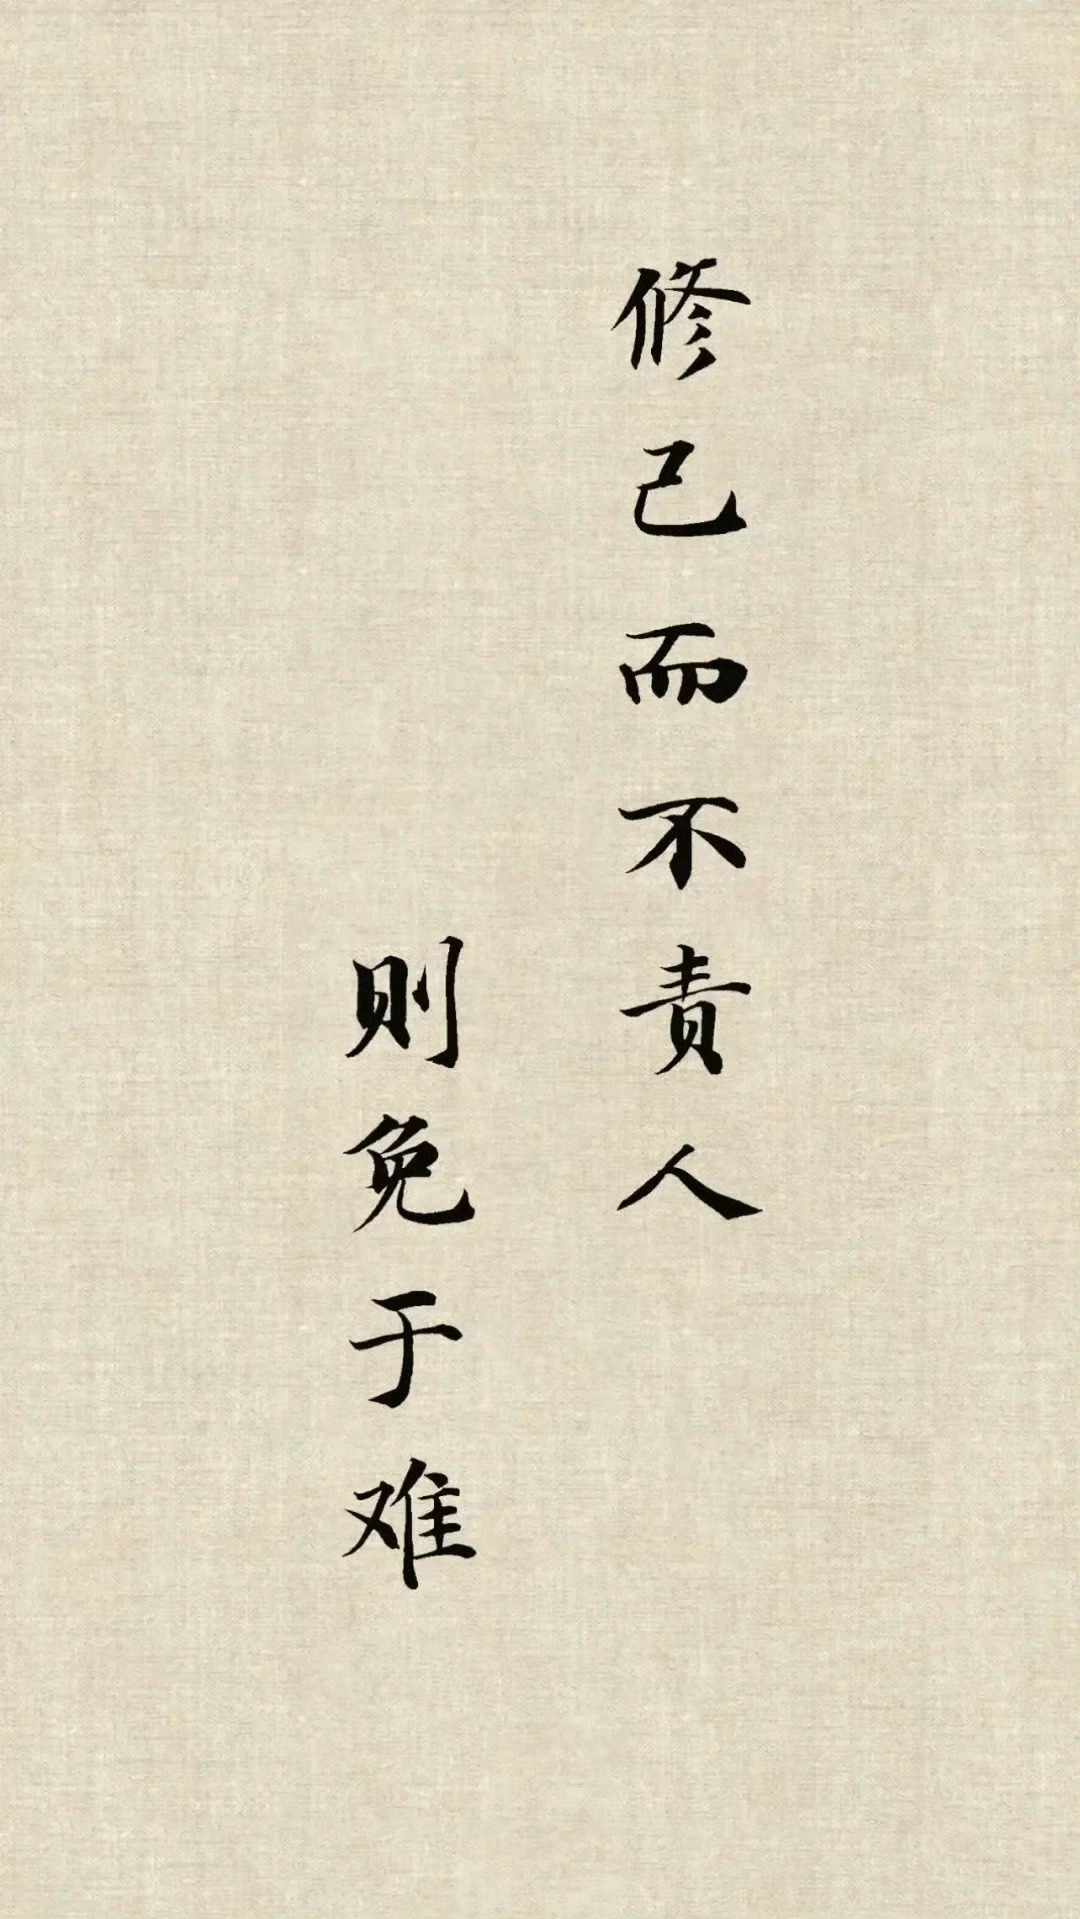 修己而不责人
则免于难